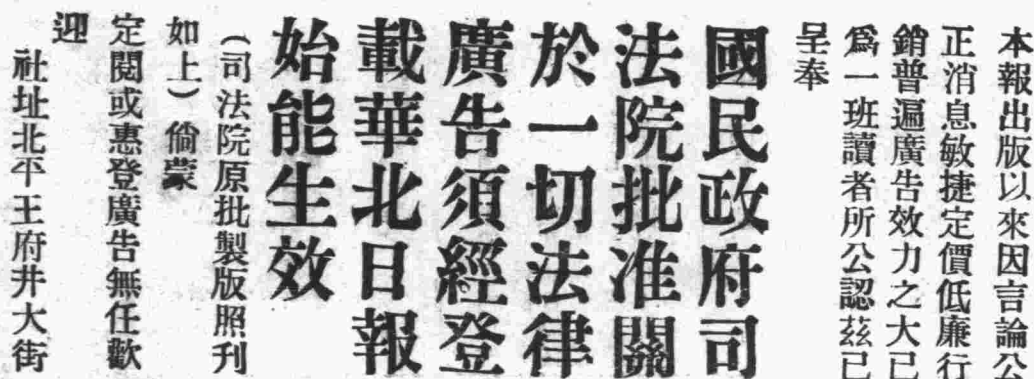 本報出版以來因言論公
正消息敏捷定價低廉行
銷普遍廣告效力之大已
爲一班讀者所公認茲已
呈奉
國民政府司
法院批准關
於一切法律
廣告須經登
載華北日報
始能生效
(司法院原批製版照刊
如上)倘蒙
定閱或惠登廣告無任歡
迎
社址北平王府井大街